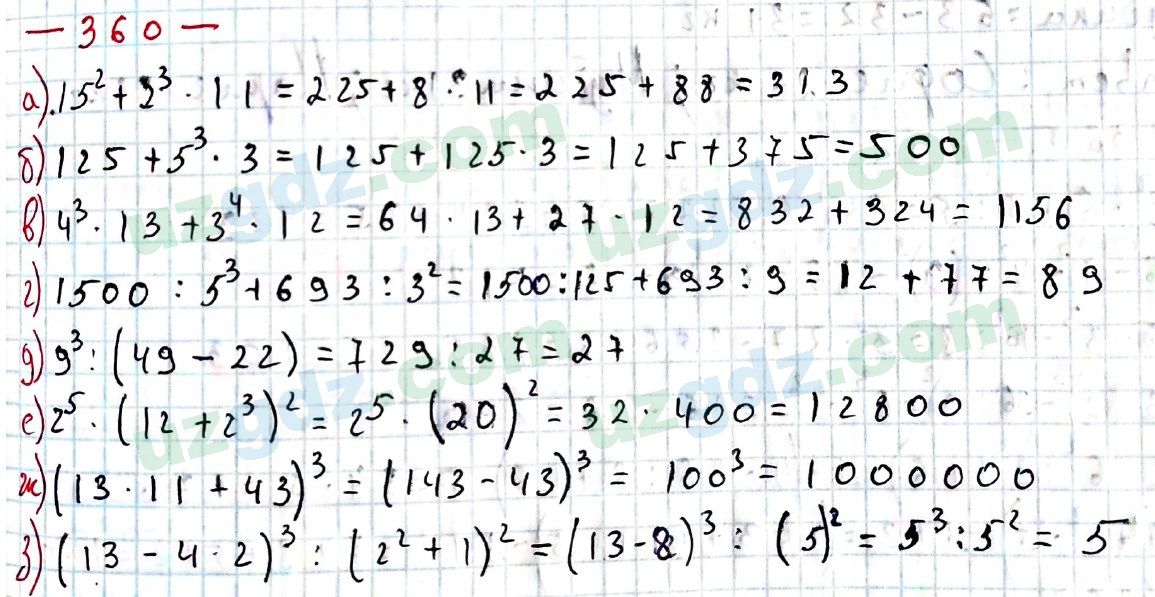 — 360 —
а) 15² + 2³ · 11 = 225 + 8 · 11 = 225 + 88 = 313
б) 125 + 5³ · 3 = 125 + 125 · 3 = 125 + 375 = 500
в) 4³ · 13 + 3⁴ · 12 = 64 · 13 + 27 · 12 = 832 + 324 = 1156
г) 1500 : 5³ + 693 : 3² = 1500 : 125 + 693 : 9 = 12 + 77 = 89
д) 9³ : (49 − 22) = 729 : 27 = 27
е) 2⁵ · (12 + 2³)² = 2⁵ · (20)² = 32 · 400 = 12800
ж) (13 · 11 + 43)³ = (143 − 43)³ = 100³ = 1000000
з) (13 − 4 · 2)³ : (2² + 1)² = (13 − 8)³ : (5)² = 5³ : 5² = 5
uzgdz.com
uzgdz.com
uzgdz.com
uzgdz.com